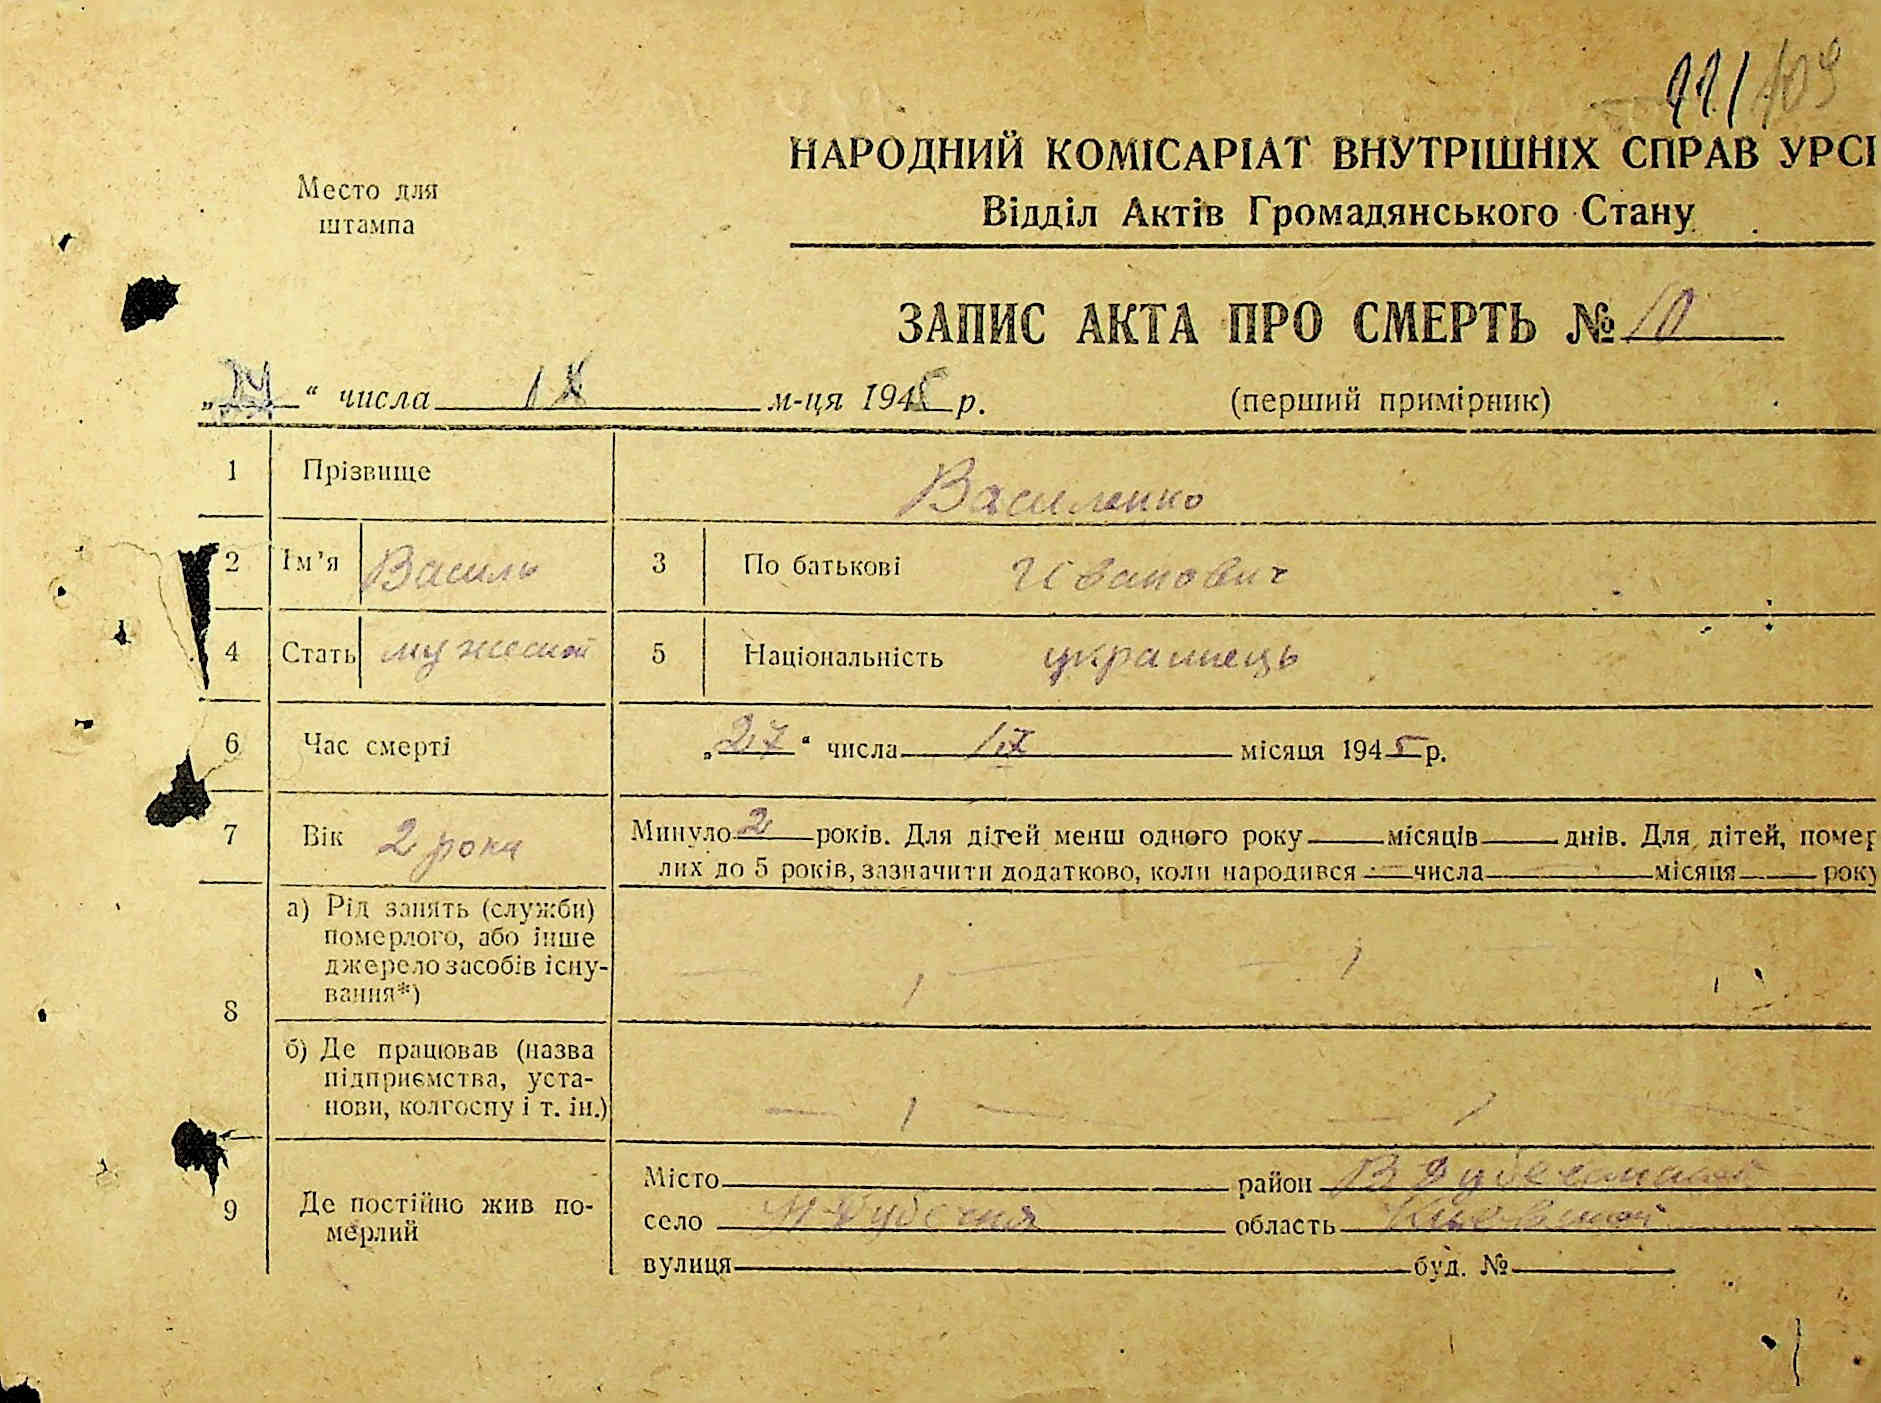 111 109
НАРОДНИЙ КОМІСАРІАТ ВНУТРІШНІХ СПРАВ УРСР
Место для
штампа
Відділ Актів Громадянського Стану
ЗАПИС АКТА ПРО СМЕРТЬ № 10
„ “ числа IX м-ця 1945 р. (перший примірник)
1 Прізвище Василенко
2 Ім'я Василь 3 По батькові Иванович
4 Стать мужеской 5 Національність украинець
6 Час смерті „27“ числа IX місяця 1945 р.
7 Вік 2 роки Минуло 2 років. Для дітей менш одного року місяців днів. Для дітей, помер
лих до 5 років, зазначити додатково, коли народився — числа місяця року
8 а) Рід занять (служби)
померлого, або інше
джерело засобів існу-
вання*)
б) Де працював (назва
підприємства, уста-
нови, колгоспу і т. ін.)
9 Де постійно жив по-
мерлий
Місто район В Дубечанской
село М-Дубечня область Киевской
вулиця буд. №